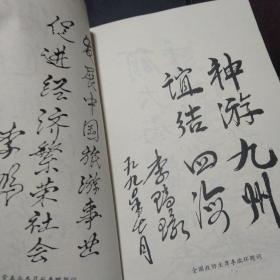 神游九州
谊结四海
李瑞环
一九九八年七月
全国政协主席李瑞环题词
发展中国旅游事业
促进经济繁荣社会
李鹏